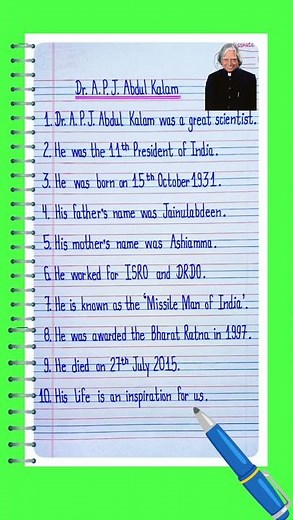 Dr. A.P.J. Abdul Kalam
1. Dr. A.P.J. Abdul Kalam was a great scientist.
2. He was the 11th President of India.
3. He was born on 15th October 1931.
4. His father's name was Jainulabdeen.
5. His mother's name was Ashiamma.
6. He worked for ISRO and DRDO.
7. He is known as the 'Missile Man of India'.
8. He was awarded the Bharat Ratna in 1997.
9. He died on 27th July 2015.
10. His life is an inspiration for us.